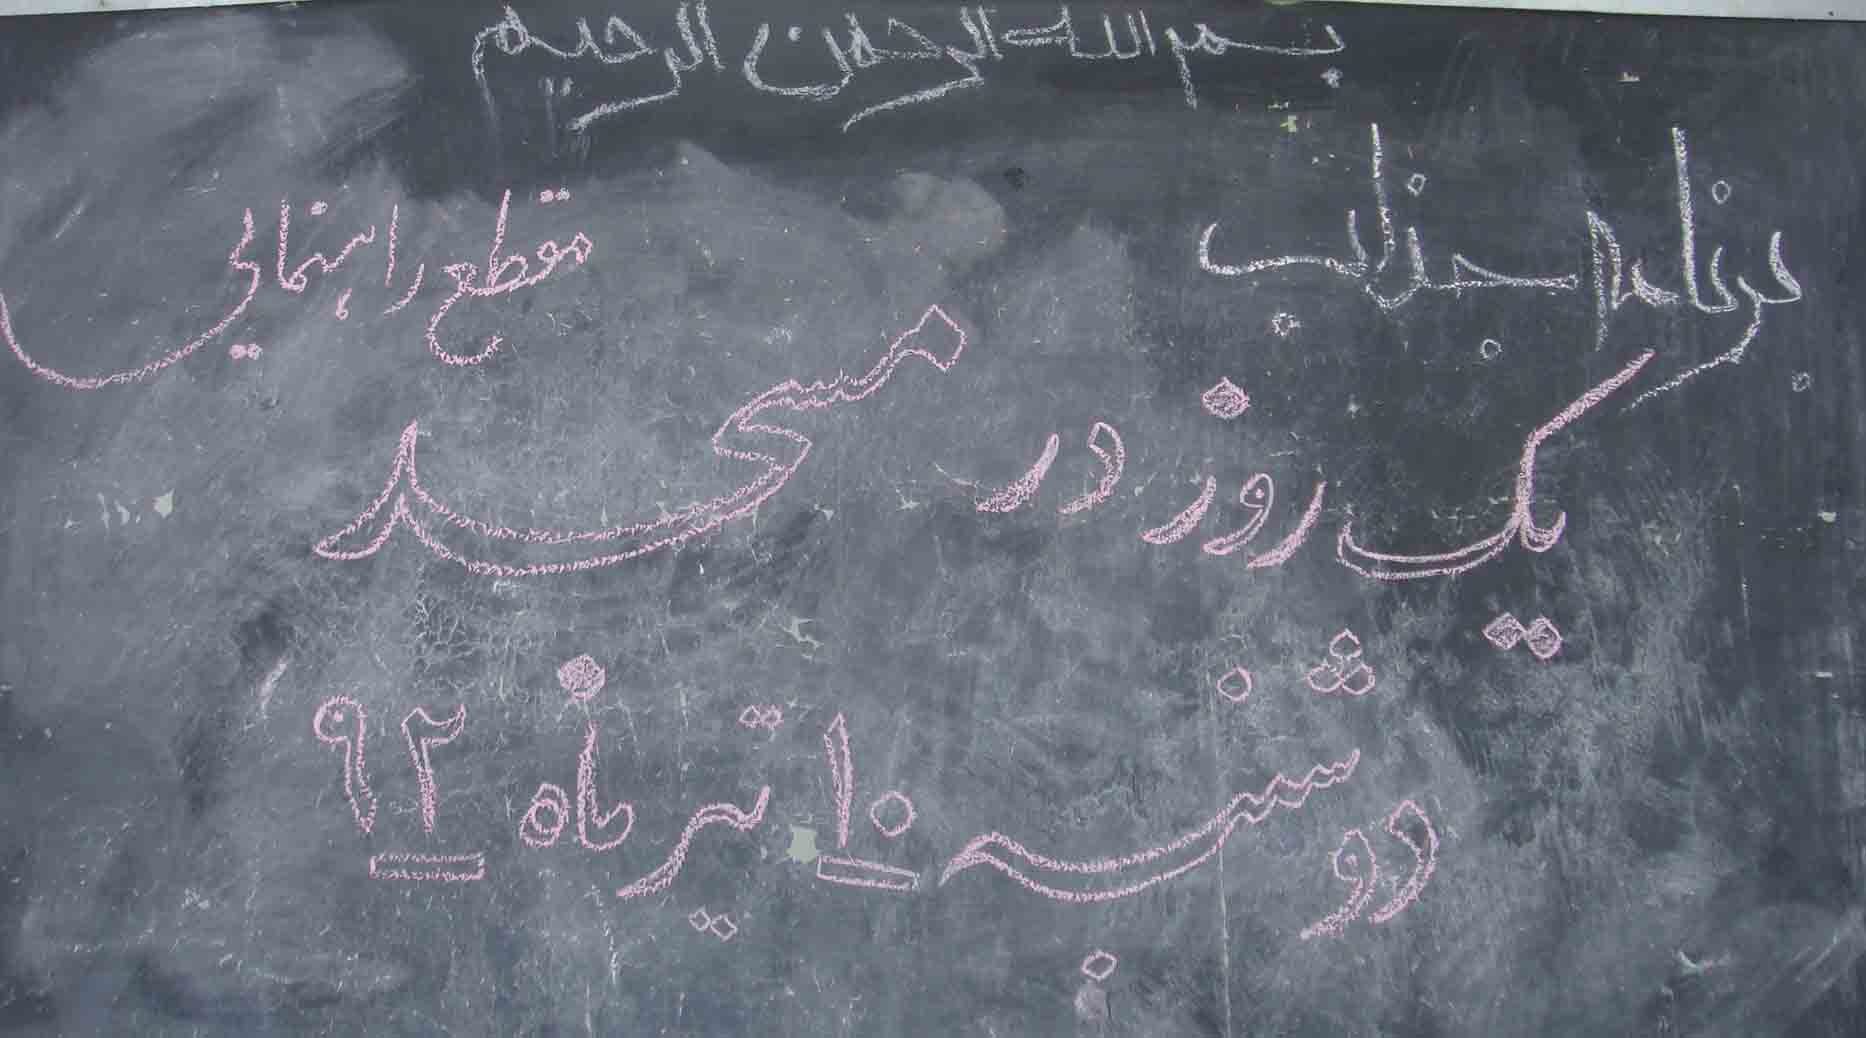 بسم الله الرحمن الرحیم
برنامه جذاب
مقطع راهنمایی
یک روز در مسجد
دوشنبه ۱۰ تیر ماه ۹۲